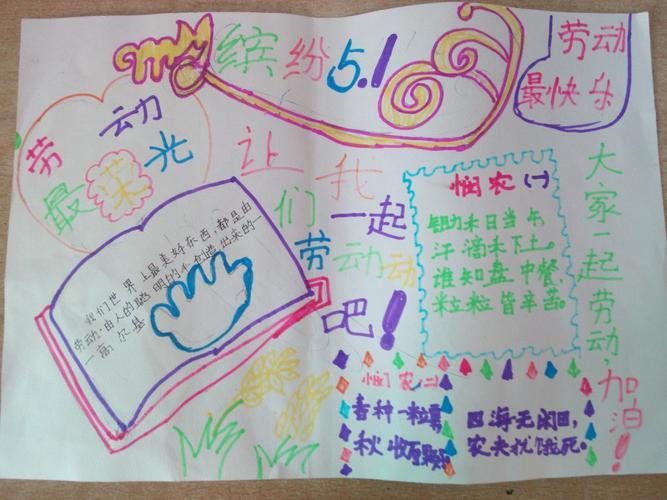 缤纷5.1
劳动
最快乐
劳动
最荣光
让我
们一起
劳动动
吧！
我们世界上最美好东西，都是由
劳动，由人的聪明的手创造出来的一
一高尔基
悯农（一）
锄禾日当午
汗滴禾下土。
谁知盘中餐
粒粒皆辛苦。
大家一起劳动，加油！
悯农（二）
春种一粒粟
秋收万颗子
四海无闲田，
农夫犹饿死。